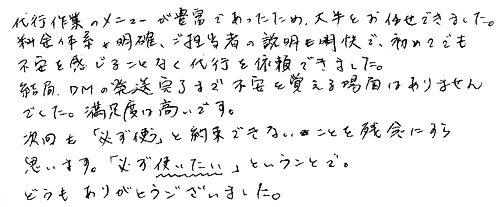 代行作業のメニューが豊富であったため、大半とお任せできました。
料金体系も明確、ご担当者の説明も明快で、初めてでも
不安を感じることなく代行を依頼できました。
結局、DMの発送完了まで不安を覚える場面はありません
でした。満足度は高いです。
次回も「必ず使う」と約束できないことを残念にすら
思います。「必ず使いたい」ということで。
どうもありがとうございました。